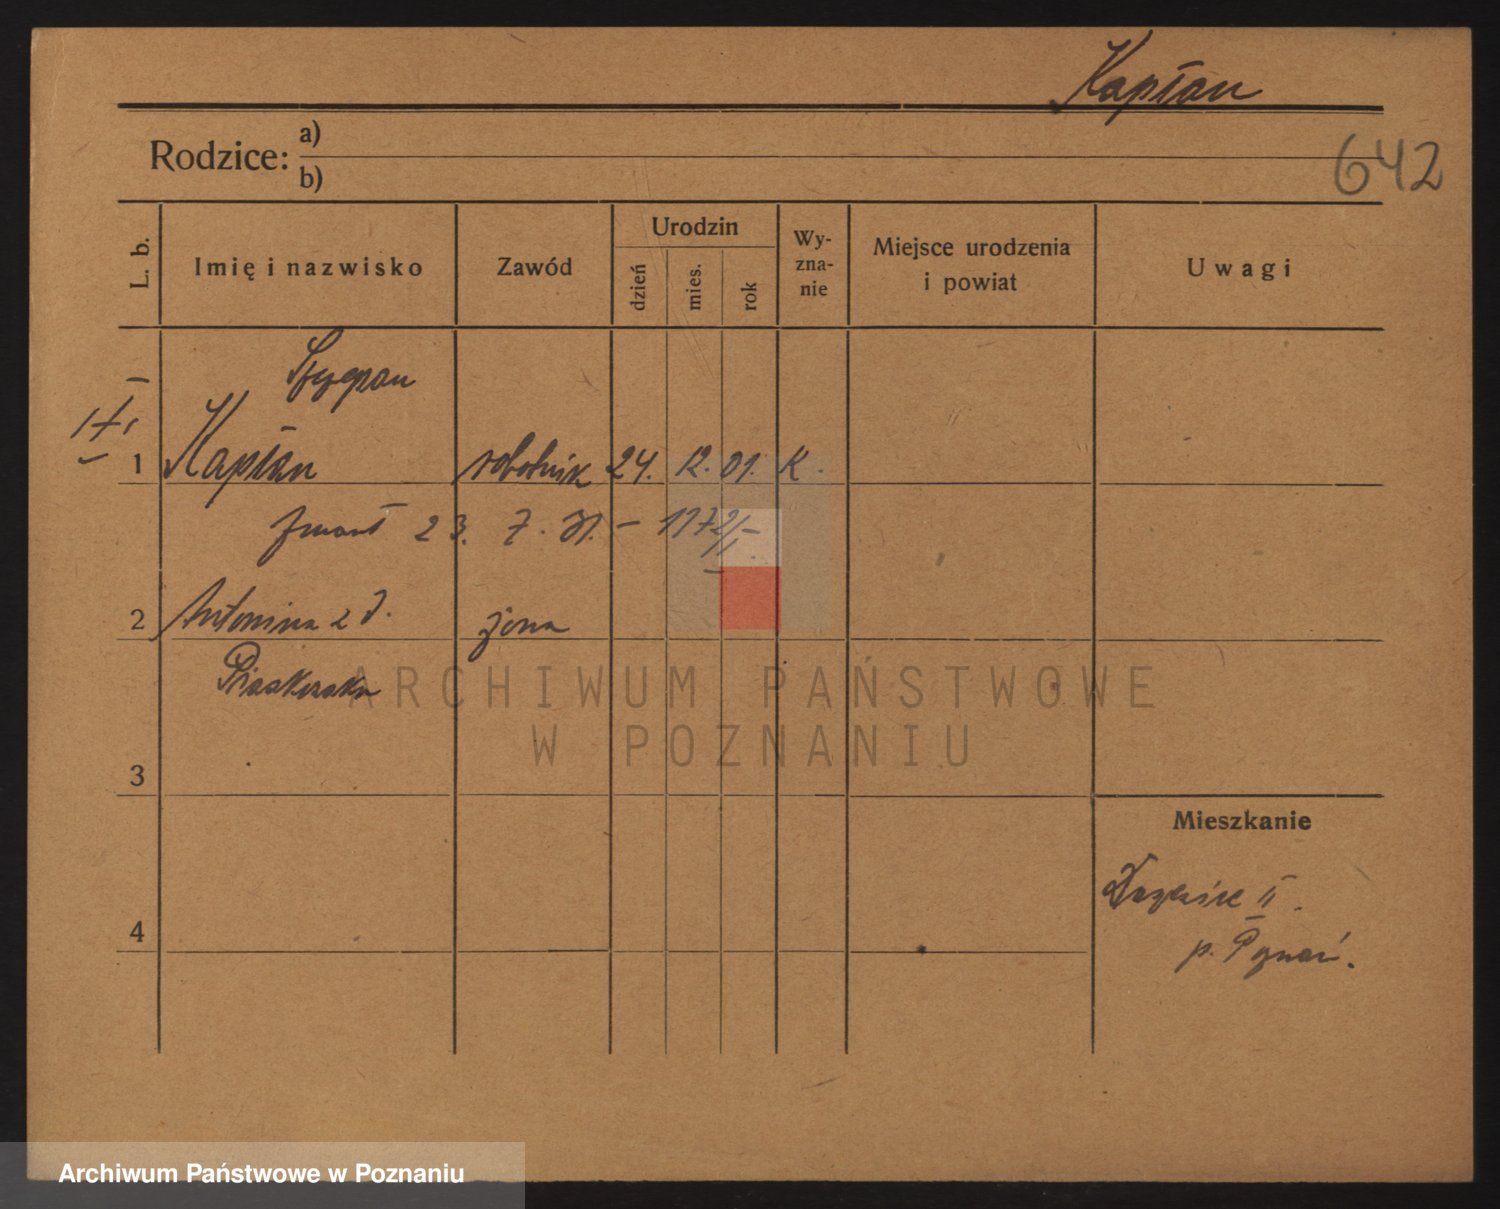 Kapłan
642
Rodzice:
a)
b)
L. b.
Imię i nazwisko
Zawód
Urodzin
dzień
mies.
rok
Wy-
zna-
nie
Miejsce urodzenia
i powiat
Uwagi
Szczepan
1 Kapłan robotnik 24. 12. 01. K.
zmarł 23. 7. 31. –
2 Antonina z d. żona
3
4
Mieszkanie
II
p. Poznań.
ARCHIWUM PAŃSTWOWE
W POZNANIU
Archiwum Państwowe w Poznaniu